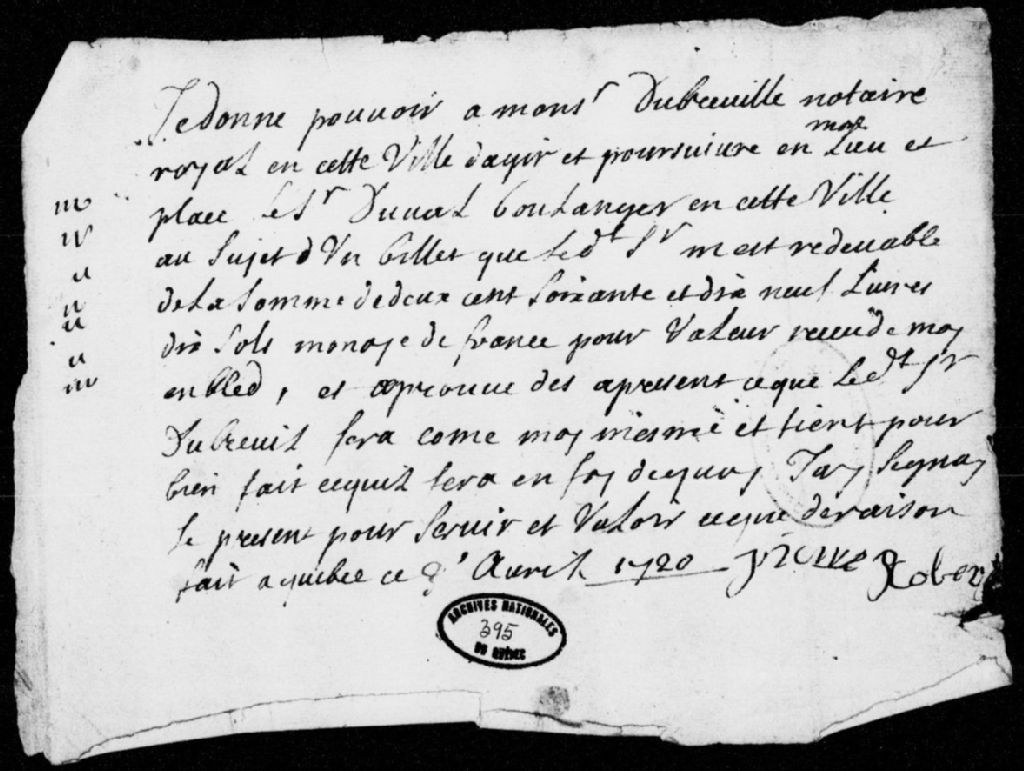 Je donne pouvoir a monsr Dubreuille notaire
royal en cette Ville dagir et poursuiure en mon Lieu et
place le Sr Duual boulanger en cette Ville
au Sujet d Un billet que led.t Sr m est redeuable
de La Somme de deux cent Soixante et dix neuf Liures
dix Sols monoye de france pour Valeur receüe de moy
en bled, et aprouue des apresent ce que Led.t Sr
Dubreuil fera come moy mesme et tient pour
bien fait cequil fera en foy dequoy Jay Segnay
le present pour Seruir et Valoir ceque de raison
fait a quebec ce Auril 1720 pierre Rober
ARCHIVES NATIONALES
395
DU QUÉBEC